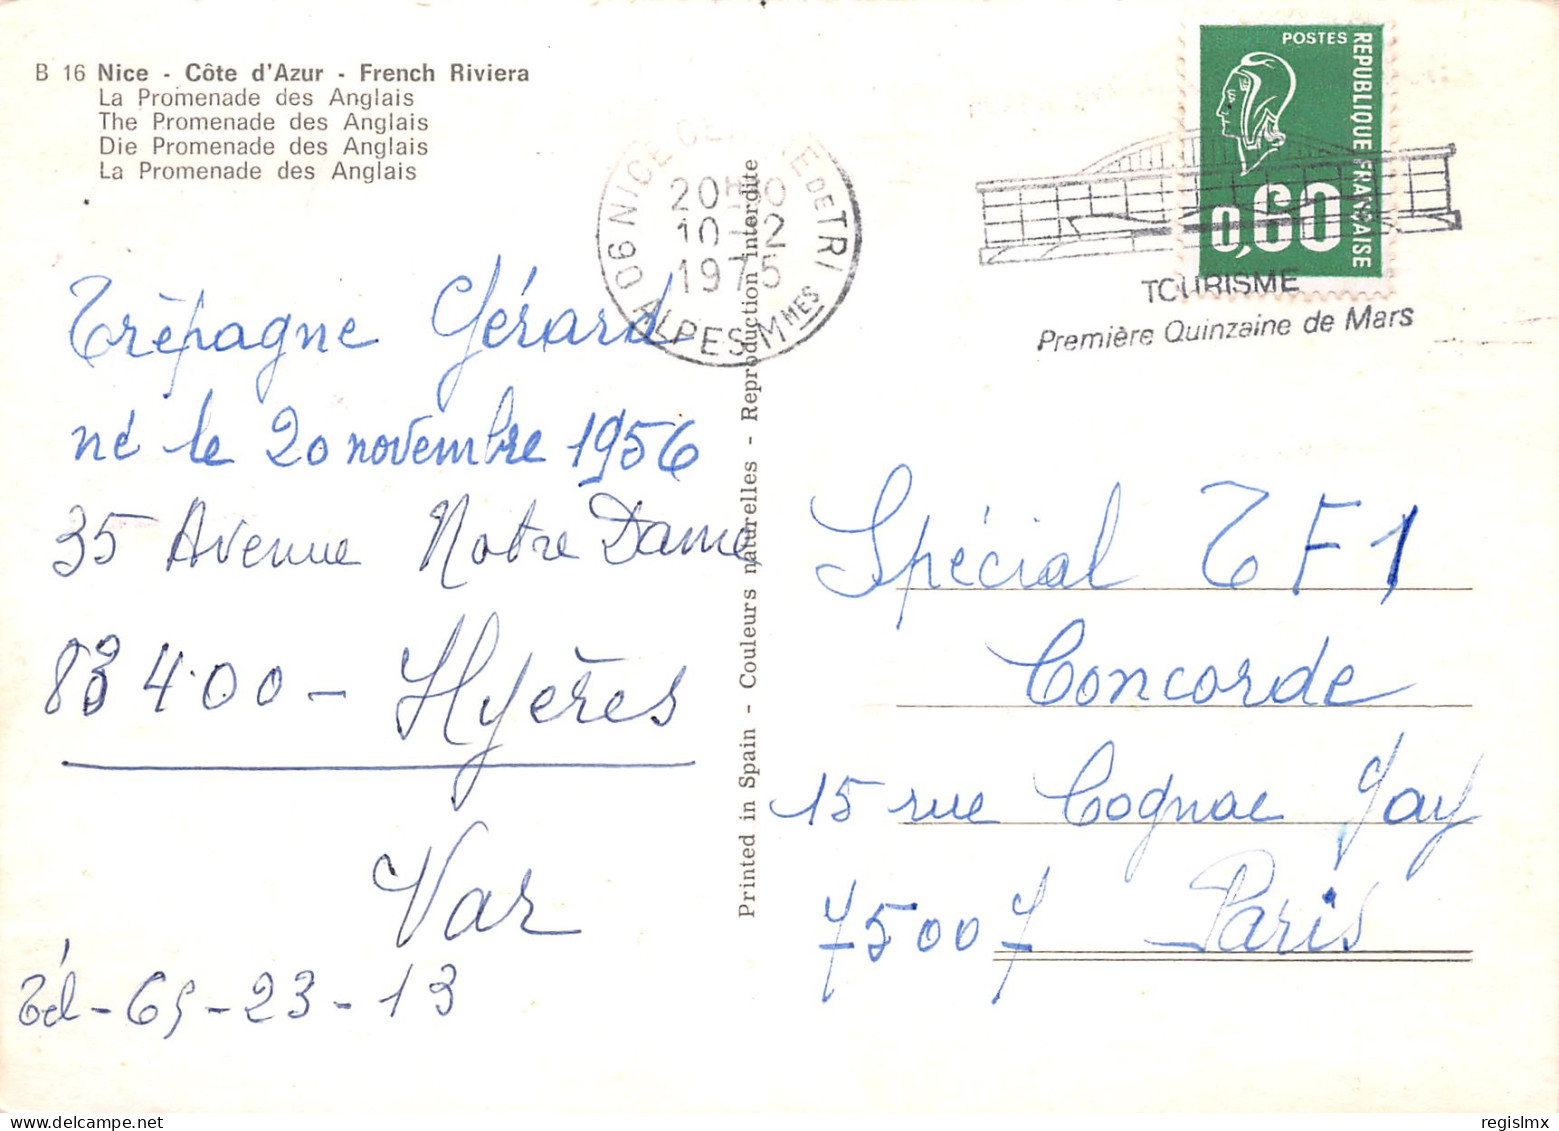 B 16 Nice - Côte d'Azur - French Riviera
La Promenade des Anglais
The Promenade des Anglais
Die Promenade des Anglais
La Promenade des Anglais
Trépagne Gérard
né le 20 novembre 1956
35 Avenue Notre Dame
83400 - Hyères
Var
Tél - 65-23-13
Printed in Spain - Couleurs naturelles - Reproduction interdite
06 NICE DE TRI
20H
10-2
1975
ALPES-MMES
POSTES
REPUBLIQUE FRANÇAISE
0,60
TOURISME
Première Quinzaine de Mars
Spécial TF1
Concorde
15 rue Cognac Jay
75007 Paris
regislmx